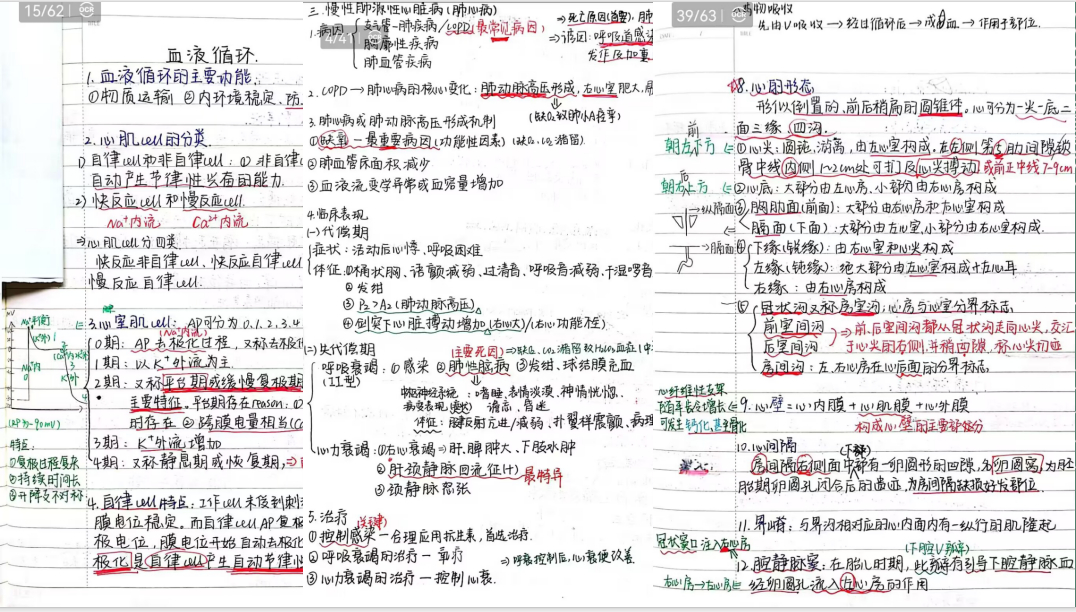 15/62
血液循环.
1.血液循环的主要功能.
①物质运输 ②内环境稳定、防
2.心肌cell的分类
1)自律cell和非自律cell:①非自律c
自动产生节律性兴奋的能力.
2)快反应cell和慢反应cell.
Na⁺内流 Ca²⁺内流
⇒心肌cell分四类
快反应非自律cell、快反应自律cell
慢反应自律cell.
3.心室肌cell: AP可分为0.1.2.3.4
(Na⁺内流)
0期: AP去极化过程,又称去极化
1期: 以K⁺外流为主
2期: 又称平台期或缓慢复极期
主要特征. 平台期存在reason:①
时存在 ②跨膜电量相当(C
3期: K⁺外流增加
4期: 又称静息期或恢复期,⇒
(RP≈-90mV)
特征:
①复极过程复杂
②持续时间长
③升降支不对称
4.自律cell特点:工作cell未受到刺
膜电位稳定,而自律cell AP复极
极电位,膜电位开始自动去极化
极化是自律cell产生自动节律性
4/41
三.慢性肺源性心脏病(肺心病)
1.病因
支气管-肺疾病/COPD(最常见病因)
胸廓性疾病
肺血管疾病
⇒死亡原因(首要),肺
⇒诱因:呼吸道感染
发作及加重
2.COPD→肺心病的核心变化:肺动脉高压形成,右心室肥大,
(缺O₂致肺小A痉挛)
3.肺心病或肺动脉高压形成机制
①缺氧-最重要病因(功能性因素)(缺O₂.CO₂潴留)
②肺血管床面积减少
③血液流变学异常或血容量增加
4.临床表现
(一)代偿期
症状:活动后心悸、呼吸困难
体征:①桶状胸、语颤减弱、过清音、呼吸音减弱、干湿啰音
②发绀
③P₂>A₂(肺动脉高压)
④剑突下心脏搏动增加(右心大)/(右心功能不全)
(二)失代偿期
主要死因)⇒缺O₂、CO₂潴留致
呼吸衰竭:①感染 ②肺性脑病 ③发绀、球结膜充血
(II型)
中枢神经系统:嗜睡、表情淡漠、神情恍惚、
谵妄、昏迷
体征:腱反射亢进/减弱、扑翼样震颤、病理
心力衰竭:①右心衰竭⇒肝、脾肿大、下肢水肿
②肝颈静脉回流征(+) 最特异
③颈静脉怒张
5.治疗
(关键)
①控制感染-合理应用抗生素,首选治疗.
②呼吸衰竭的治疗-氧疗 ⇒呼衰控制后,心衰便改善.
③心力衰竭的治疗-控制心衰.
39/63
先由V吸收→经过循环后→成A血→作用于部位.
8.心的形态
形似倒置的、前后稍扁的圆锥体,心可分为一尖一底二
面三缘、四沟.
前
朝左下方
①心尖:圆钝,游离,由左心室构成,在左侧第⑤肋间隙锁
骨中线内侧1~2cm处可扪及心尖搏动 或前正中线7-9cm
后
朝右上方
②心底:大部分由左心房、小部分由右心房构成
③胸肋面(前面):大部分由右心房和右心室构成
膈面(下面):大部分由左心室,小部分由右心室构成.
→纵隔面
→膈面
④下缘(锐缘):由右心室和心尖构成
左缘(钝缘):绝大部分由左心室构成+左心耳
右缘:由右心房构成
⑤冠状沟又称房室沟,心房与心室分界标志
前室间沟
后室间沟
⇒前.后室间沟都从冠状沟走向心尖,交汇
于心尖的右侧,并稍向隙,称心尖切迹
房间沟:左.右心房在心底面的分界标志.
心纤维性支架
随着年龄增长
可发生钙化,甚至骨化
9.心壁=心内膜+心肌膜+心外膜
构成心壁的主要部分
10.心间隔
(下部)
房间隔右侧面中部有一卵圆形的凹隙,名卵圆窝,为胚
胎期卵圆孔闭合后的遗迹,为房间隔缺损好发部位.
11.界嵴:与界沟相对应的心内面内有一纵行的肌隆起
冠状窦口注入右心房
(下腔V瓣)
12.腔静脉窦:在胎儿时期,此瓣有引导下腔静脉血
右心房→左心房
经卵圆孔流入左心房的作用